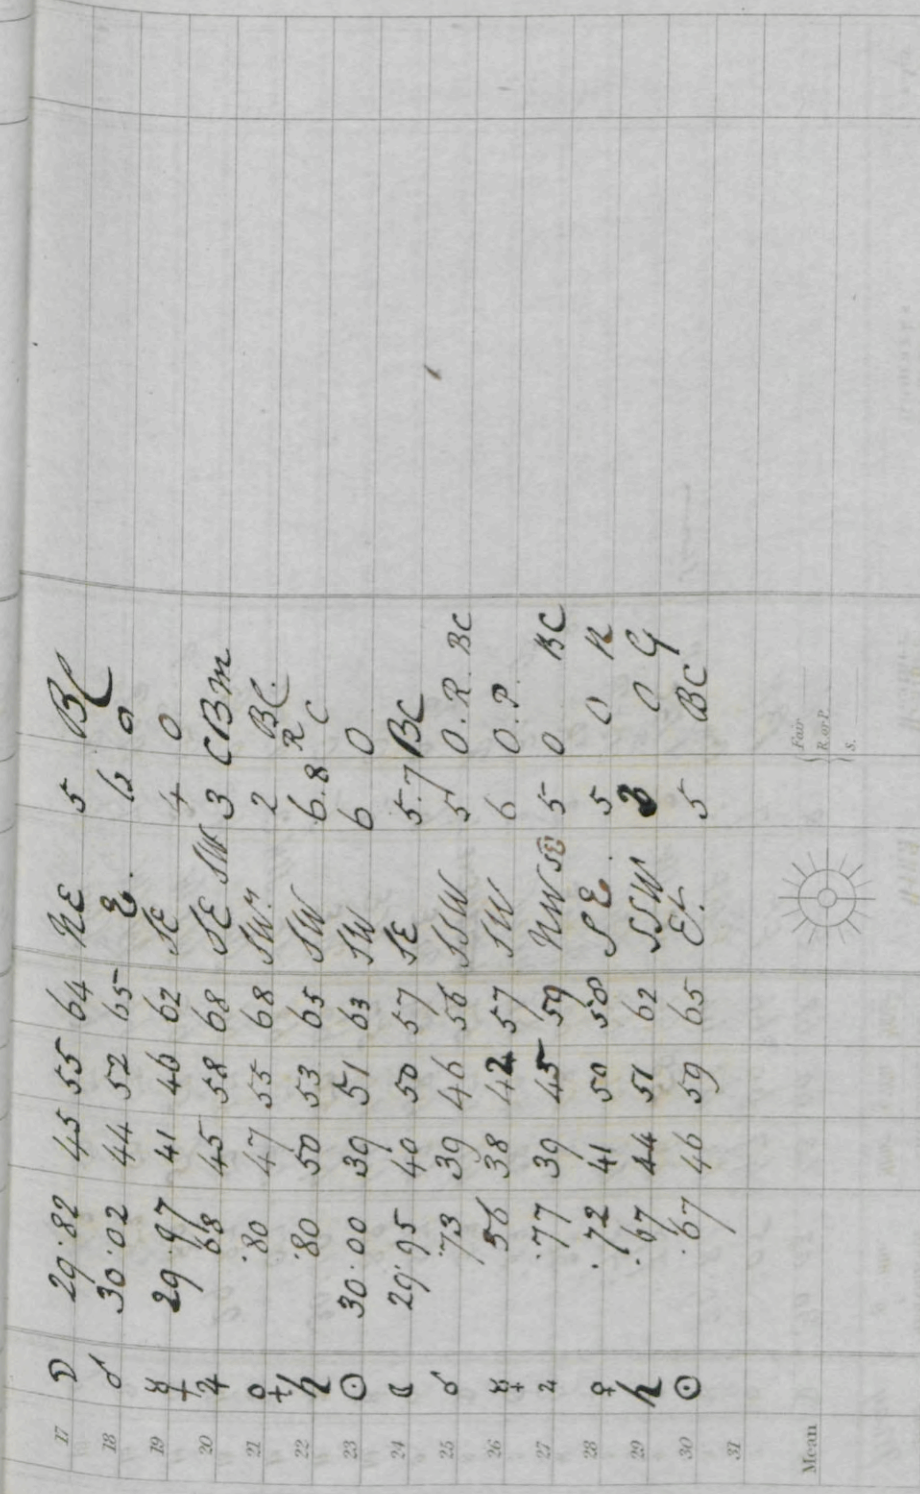 17 ☽ 29.82 45 55 64 NE 5 BC
18 ♂ 30.02 44 52 65 E. 6 O
19 ☿ 29.97 41 46 62 SE 4 O
20 ♃ 68 45 58 68 SE SW 3 CBM
21 ♀ .80 47 55 68 SW. 2 BC. R
22 ♄ .80 50 53 65 SW 6.8 C
23 ☉ 30.00 39 51 63 SW 6 O
24 ☾ 29.95 40 50 57 SE 5.7 BC
25 ♂ .73 39 46 56 SSW 5 O.R. BC
26 ☿ 56 38 42 57 SW 6 O.P.
27 ♃ .77 39 45 59 NW SE 5 O BC
28 ♀ .72 41 50 58 SE. 5 O R
29 ♄ .67 44 51 62 SSW O G
30 ☉ .67 46 59 65 Et. 5 BC
31
Mean Fair
R. or P.
S.